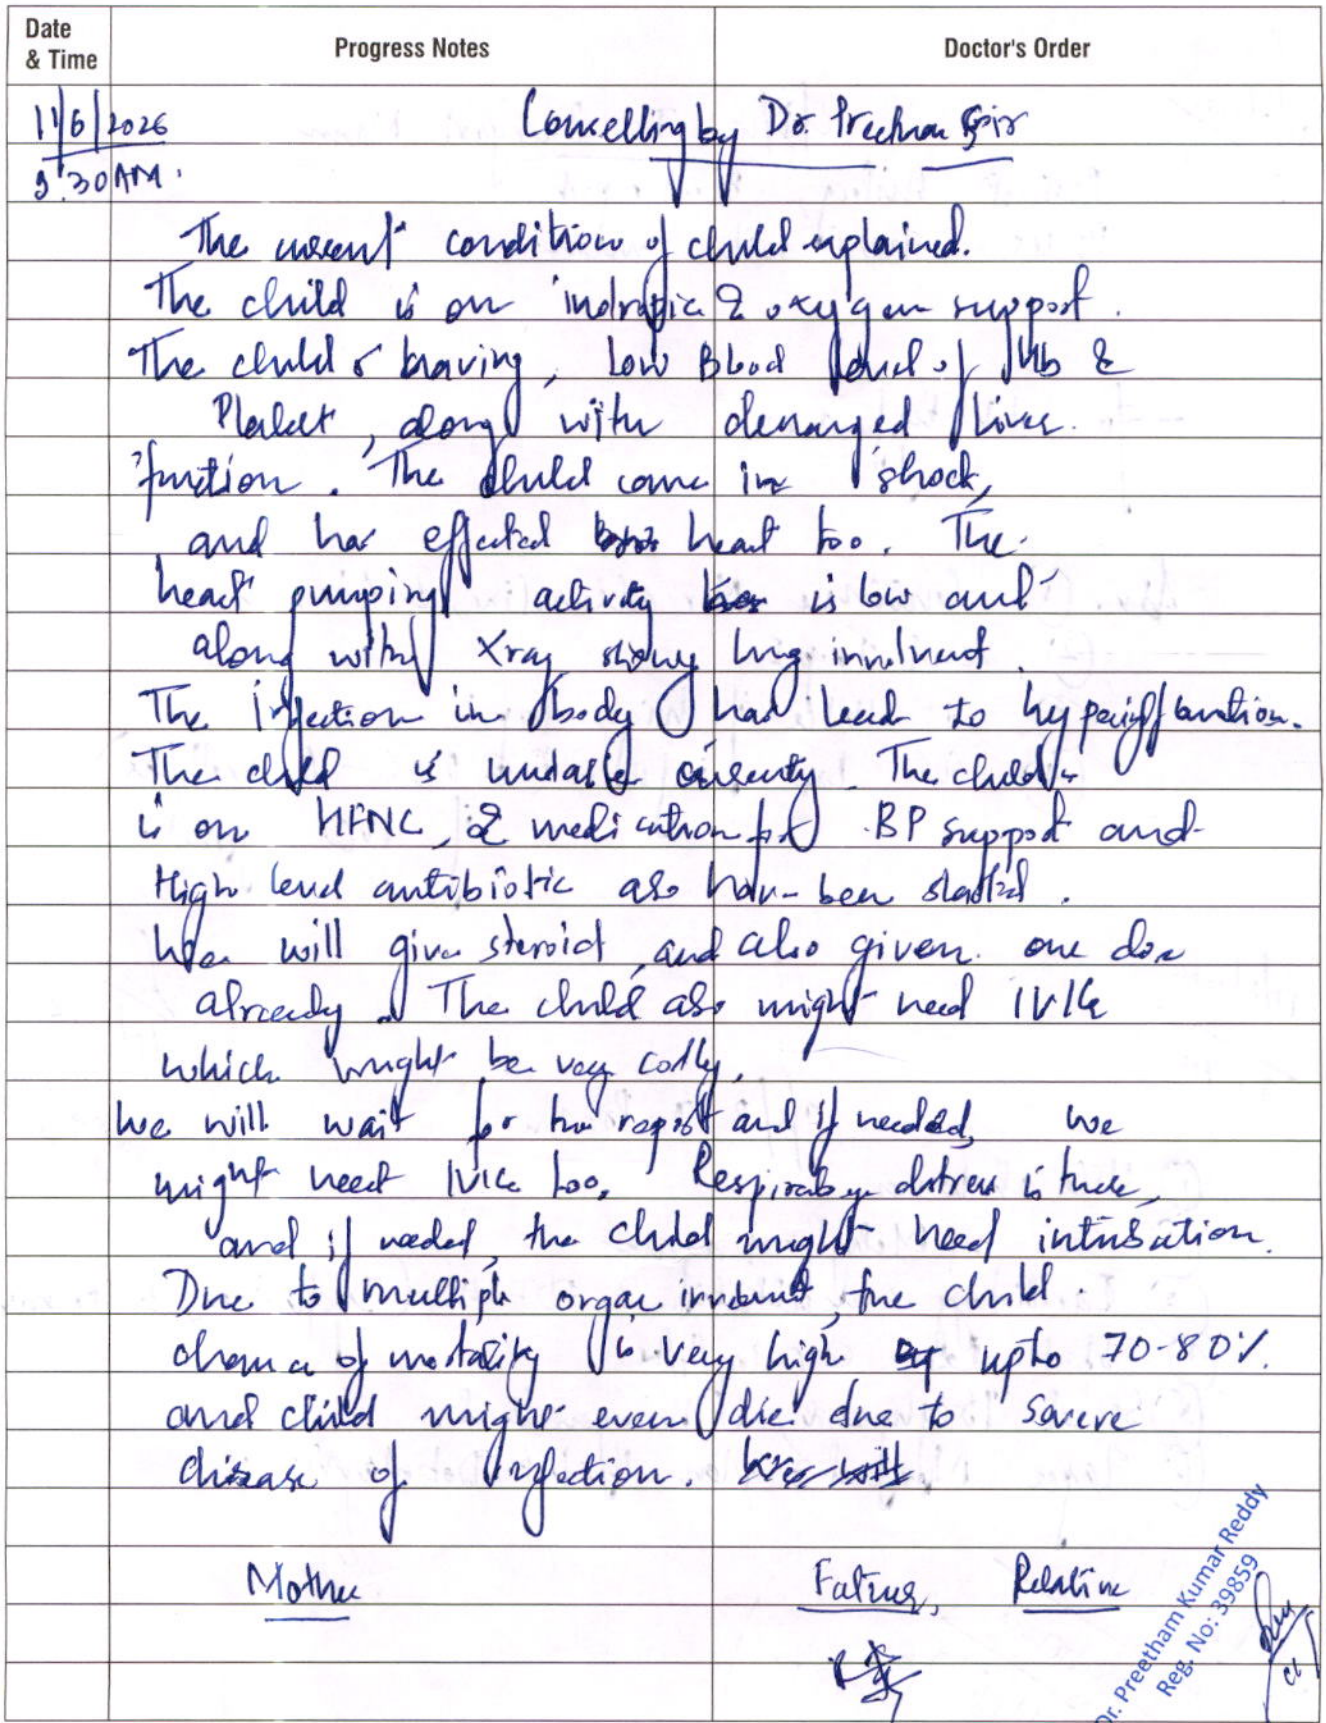 Date & Time
Progress Notes
Doctor's Order
11/6/2026
9:30AM.
Councelling by Dr. Preetham Sir
The current condition of child explained.
The child is on inotropic & oxygen support.
The child is having, Low Blood level of Hb &
Platelet, along with deranged liver
function. The child came in shock,
and has effected heart too. The
heart pumping activity is low and
along with Xray showing lung involvement.
The infection in body has lead to hyperinflamation.
The child is unstable currently. The child
is on HFNC, & medication for BP support and
High level antibiotic also have been started.
We will give steroid, and also given one dose
already. The child also might need IVIG
which might be very costly.
We will wait for the report and if needed, we
might need IVIG too. Respiratory distress is there,
and if needed, the child might need intubation.
Due to multiple organ involvement, the child
chance of mortality is very high upto 70-80%.
and child might even die due to severe
disease of infection.
Mother
Father, Relative
Dr. Preetham Kumar Reddy
Reg. No: 39859